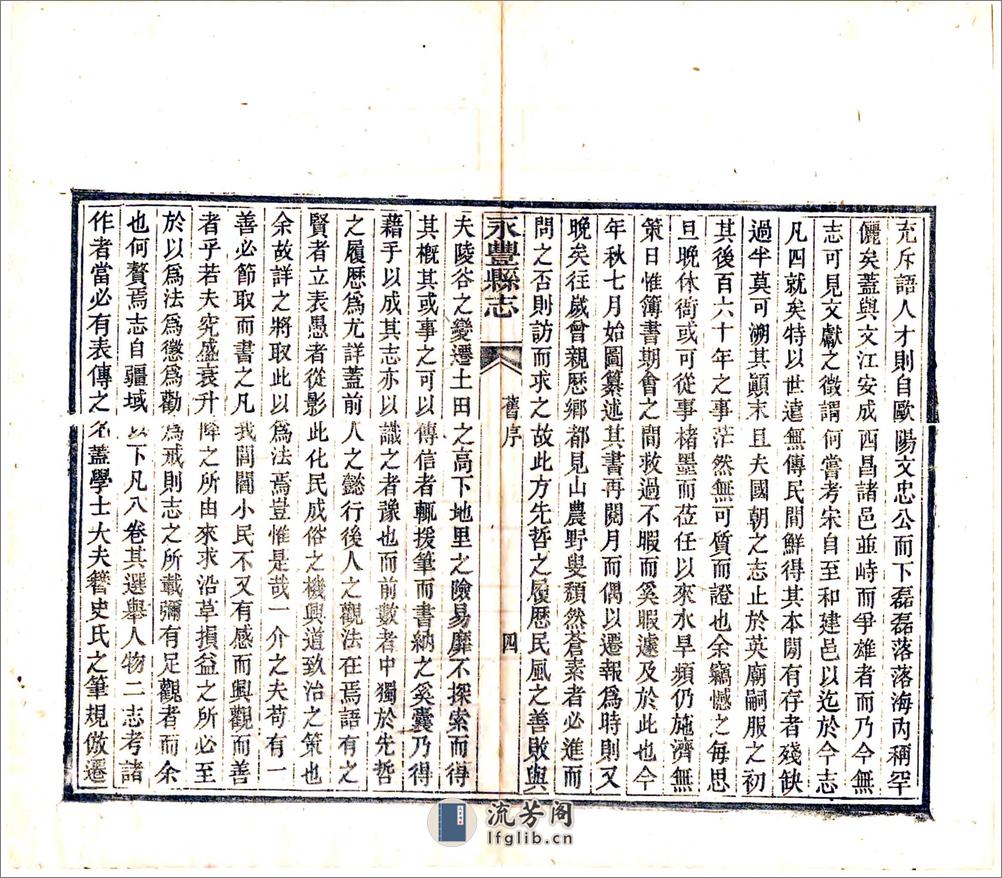 充斥語人才則自歐陽文忠公而下磊磊落落海內稱罕
儷矣蓋與文江安成西昌諸邑並峙而爭雄者而乃今無
志可見文獻之徵謂何嘗考宋自至和建邑以迄於今志
凡四就矣特以世遠無傳民間鮮得其本閒有存者殘缺
過半莫可溯其顛末且夫國朝之志止於英廟嗣服之初
其後百六十年之事茫然無可質而證也余竊憾之每思
旦晚休衙或可從事楮墨而莅任以來水旱頻仍施濟無
策日惟簿書期會之間救過不暇而奚暇遽及於此也今
年秋七月始圖纂述其書再閱月而偶以遷報爲時則又
晚矣往歲曾親歷鄉都見山農野叟頹然蒼素者必進而
問之否則訪而求之故此方先哲之履歷民風之善敗與
永豐縣志
舊序
四
夫陵谷之變遷土田之高下地里之險易靡不探索而得
其概其或事之可以傳信者輒援筆而書納之奚囊乃得
藉手以成其志亦以識之者豫也而前數者中獨於先哲
之履歷爲尤詳蓋前人之懿行後人之觀法在焉語有之
賢者立表愚者從影此化民成俗之機興道致治之策也
余故詳之將取此以爲法焉豈惟是哉一介之夫苟有一
善必節取而書之凡我閭閻小民不又有感而興觀而善
者乎若夫究盛衰升降之所由來求沿革損益之所必至
於以爲法爲懲爲勸爲戒則志之所載彌有足觀者而余
也何贅焉志自疆域以下凡八卷其選舉人物二志考諸
作者當必有表傳之名蓋學士大夫簪史氏之筆規倣遷
流芳阁
lfglib.cn